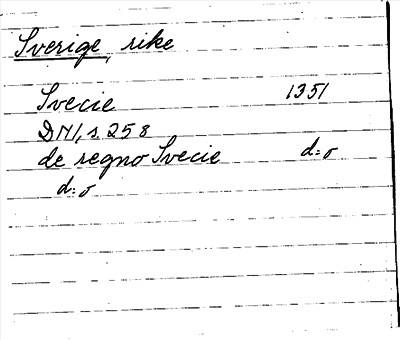 Sverige, rike
Svecie 1351
DN1, s. 258
de regno Svecie d:o
d:o